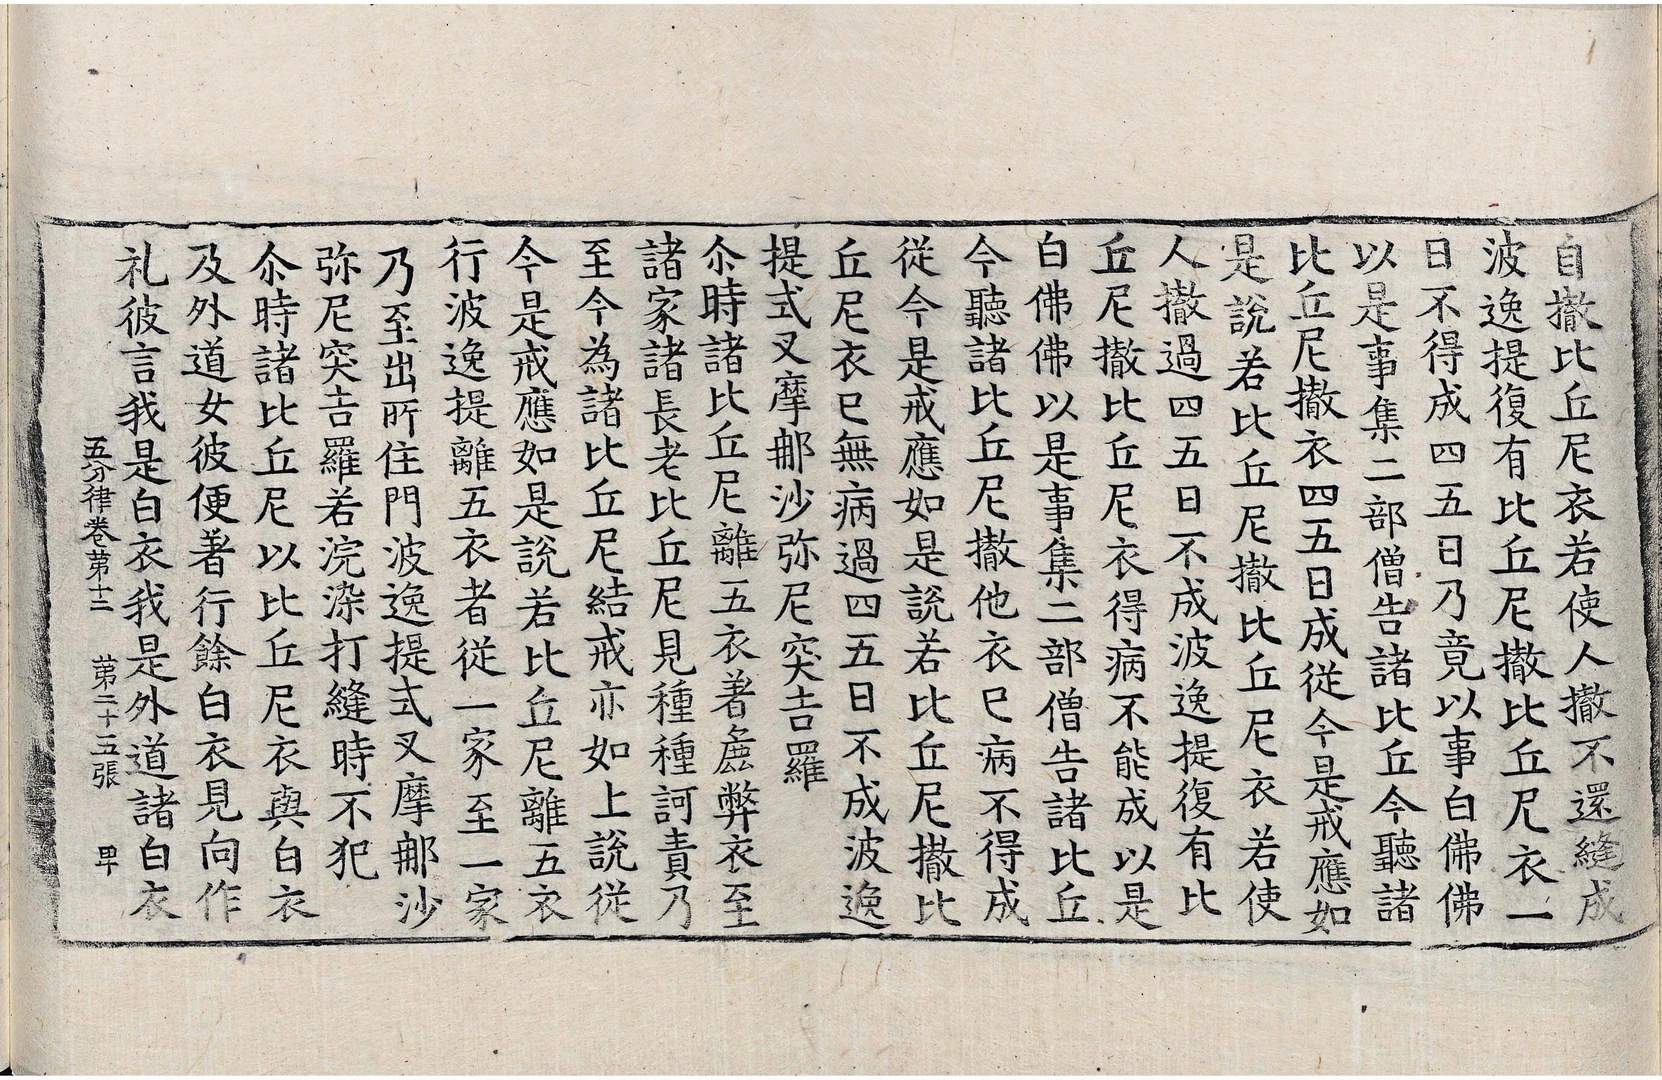 自撤比丘尼衣若使人撤不還縫成
波逸提復有比丘尼撤比丘尼衣一
日不得成四五日乃竟以事白佛佛
以是事集二部僧告諸比丘今聽諸
比丘尼撤衣四五日成從今是戒應如
是說若比丘尼撤比丘尼衣若使
人撤過四五日不成波逸提復有比
丘尼撤比丘尼衣得病不能成以是
白佛佛以是事集二部僧告諸比丘
今聽諸比丘尼撤他衣巳病不得成
從今是戒應如是說若比丘尼撤比
丘尼衣巳無病過四五日不成波逸
提式叉摩那沙弥尼突吉羅
尒時諸比丘尼離五衣著麁弊衣至
諸家諸長老比丘尼見種種訶責乃
至今為諸比丘尼結戒亦如上說從
今是戒應如是說若比丘尼離五衣
行波逸提離五衣者從一家至一家
乃至出所住門波逸提式叉摩那沙
弥尼突吉羅若浣染打縫時不犯
尒時諸比丘尼以比丘尼衣與白衣
及外道女彼便著行餘白衣見向作
礼彼言我是白衣我是外道諸白衣
五分律卷苐十三 苐二十五張 甲